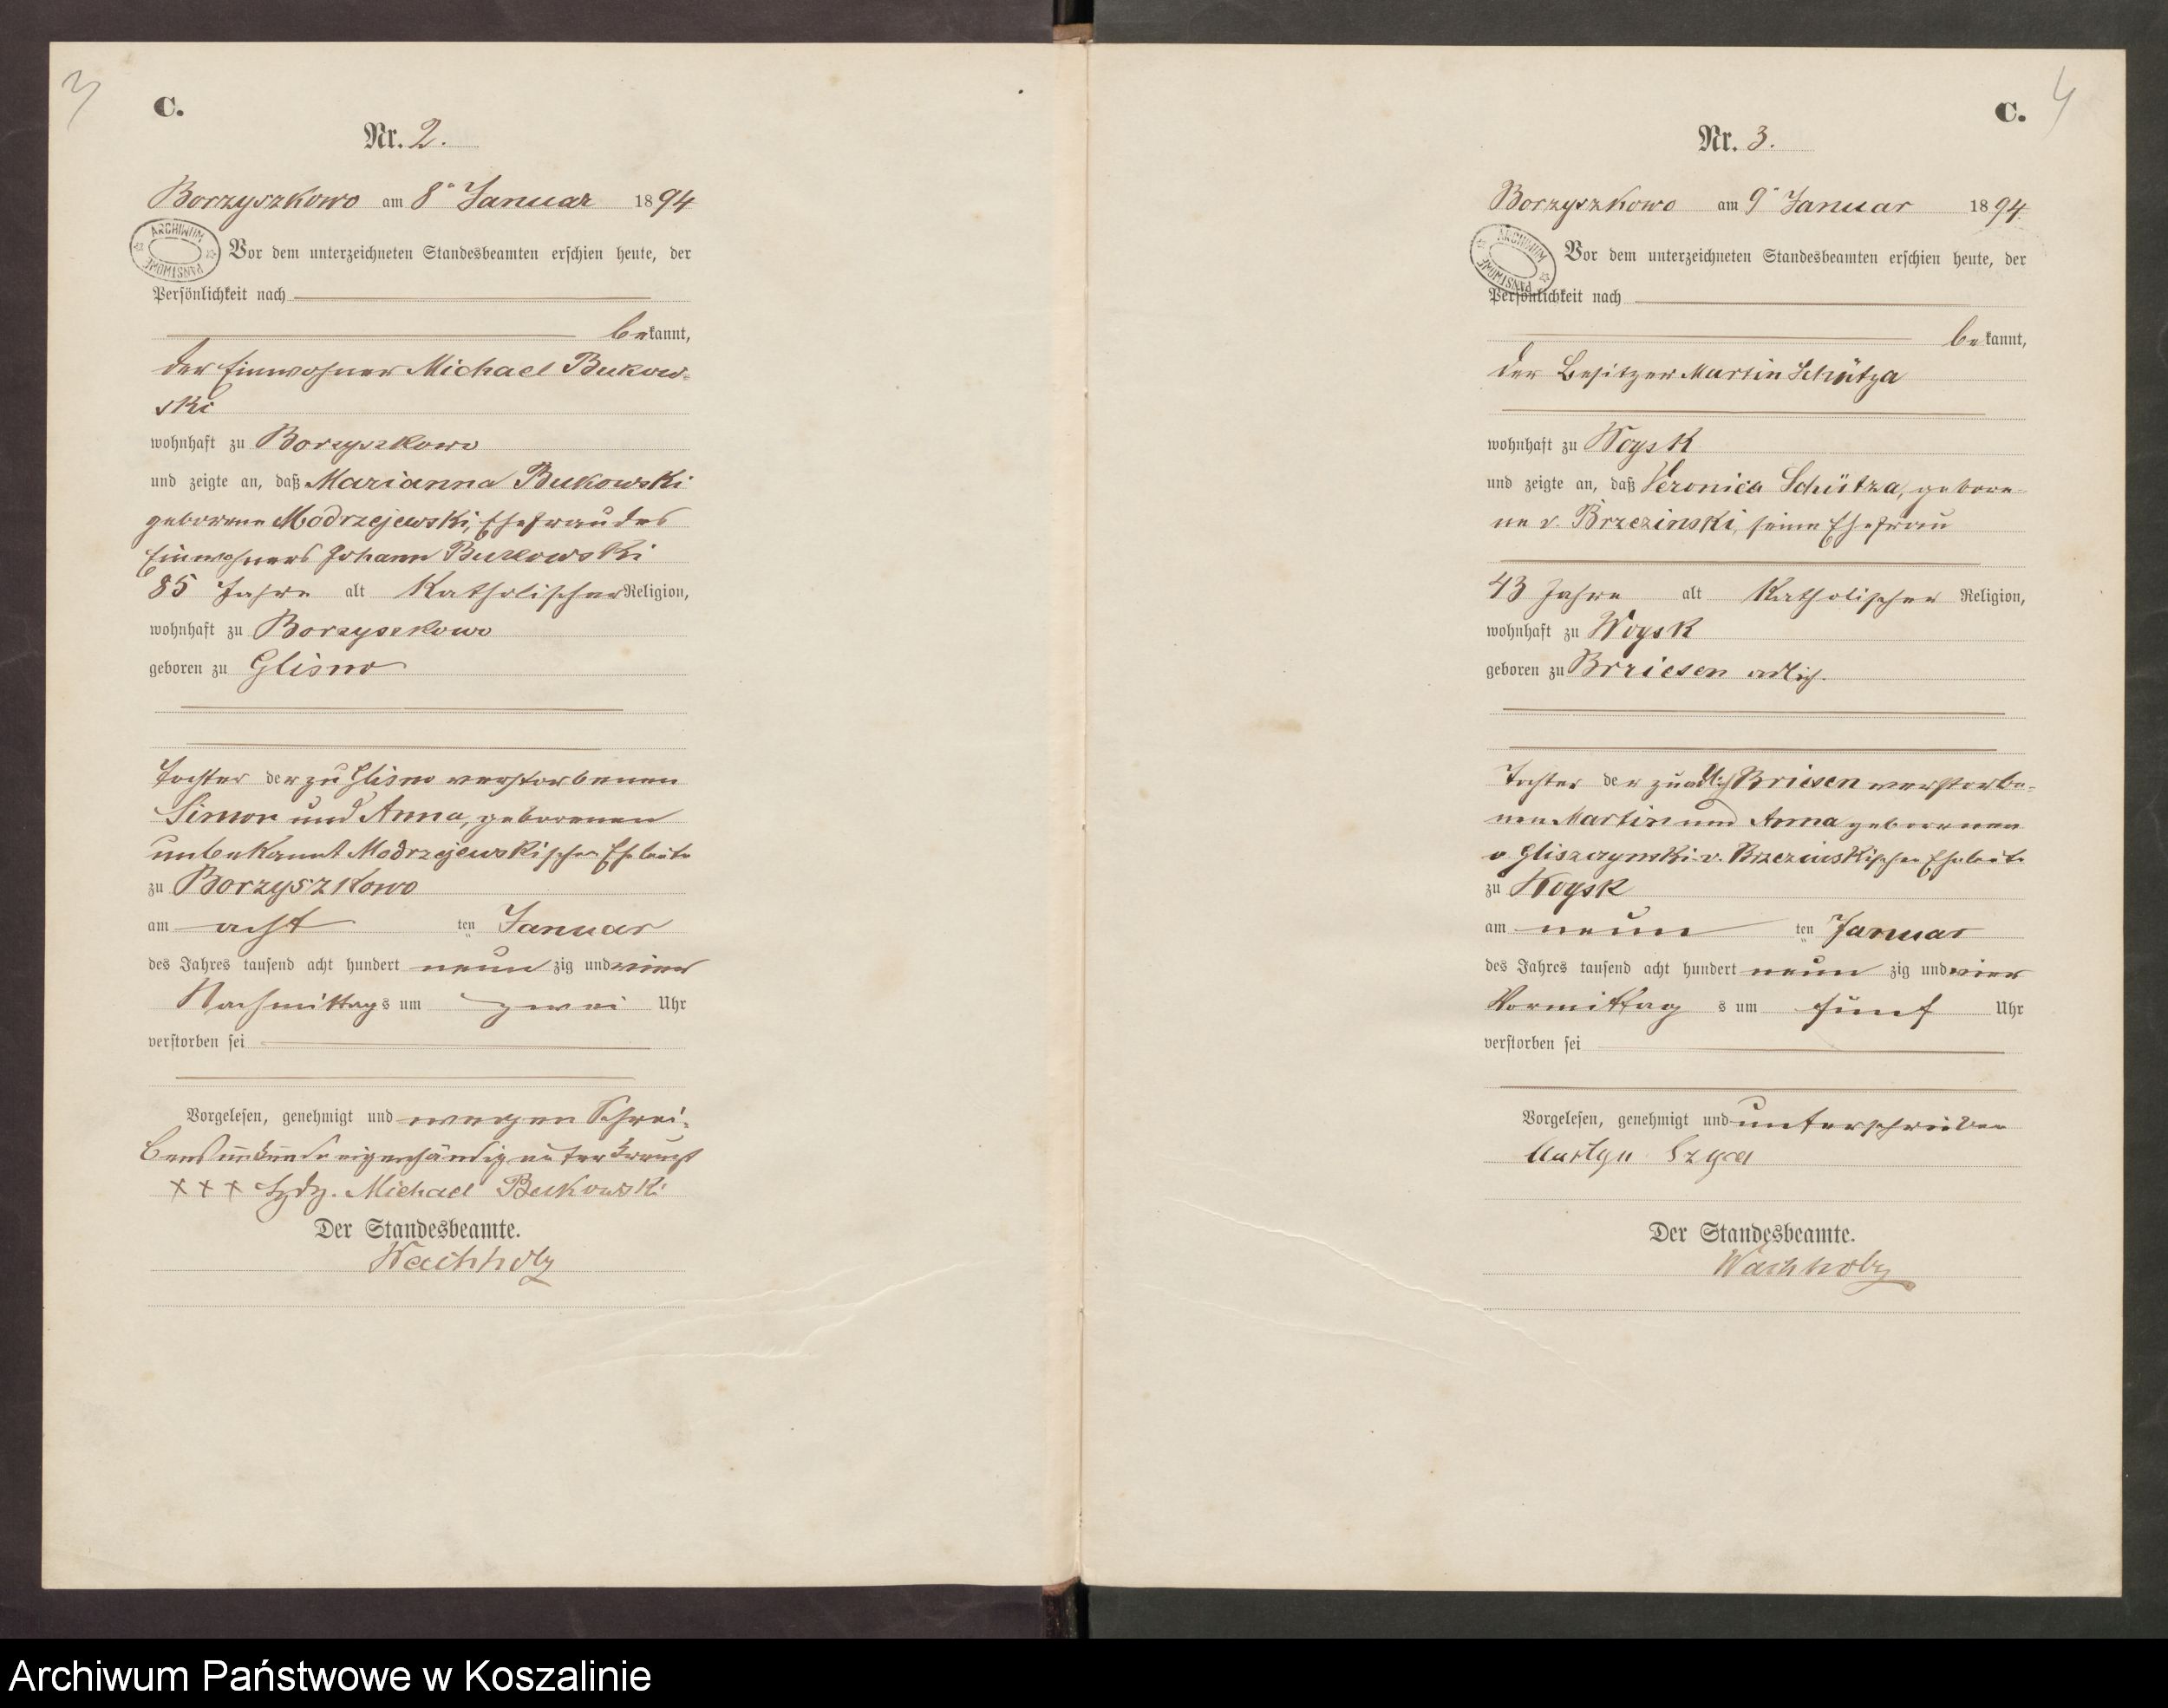 3
C.
Nr. 2.
Borzyszkowo am 8" Januar 1894
ARCHIWUM PAŃSTWOWE
Vor dem unterzeichneten Standesbeamten erschien heute, der
Persönlichkeit nach
bekannt,
der Einwohner Michael Bukow-
ski
wohnhaft zu Borzyszkowo
und zeigte an, daß Marianna Bukowski
geborene Modrzejewski, Ehefrau des
Einwohners Johann Bukowski
85 Jahre alt Katholischer Religion,
wohnhaft zu Borzyszkowo
geboren zu Glisno
Tochter der zu Glisno verstorbenen
Simon und Anna, geborenen
unbekannt Modrzejewskischen Eheleute
zu Borzyszkowo
am acht ten Januar
des Jahres tausend acht hundert neun zig und vier
Nachmittags um zwei Uhr
verstorben sei
Vorgelesen, genehmigt und wegen Schrei-
bensunkunde eigenhändig unterkreuzt
+++ Hdz. Michael Bukowski
Der Standesbeamte.
Wachholz
4
C.
Nr. 3.
Borzyszkowo am 9" Januar 1894.
ARCHIWUM PAŃSTWOWE
Vor dem unterzeichneten Standesbeamten erschien heute, der
Persönlichkeit nach
bekannt,
der Besitzer Martin Schütza
wohnhaft zu Woysk
und zeigte an, daß Veronica Schütza, gebore-
ne v. Brzezinski, seine Ehefrau
43 Jahre alt Katholischer Religion,
wohnhaft zu Woysk
geboren zu Brziesen adlich.
Tochter der zu adlich Briesen verstorbe-
nen Martin und Anna geborenen
v Gliszczynski v. Brzezinskischen Eheleute
zu Woysk
am neun ten Januar
des Jahres tausend acht hundert neun zig und vier
Vormittag s um fünf Uhr
verstorben sei
Vorgelesen, genehmigt und unterschrieben
Martyn Szyca
Der Standesbeamte.
Wachholz
Archiwum Państwowe w Koszalinie